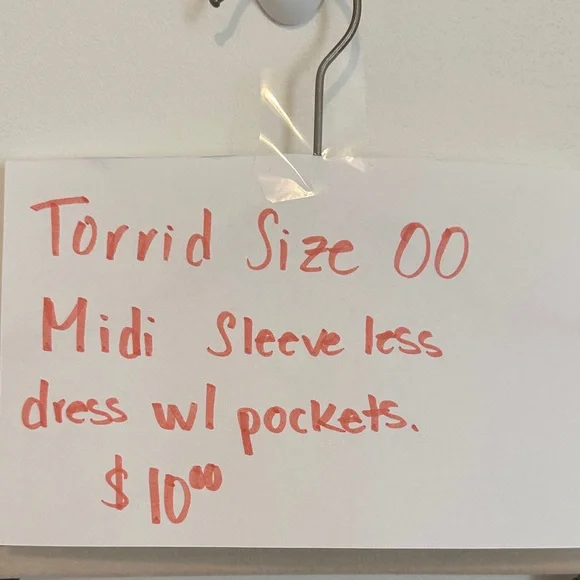 Torrid Size 00
Midi Sleeveless
dress w/ pockets.
$10⁰⁰